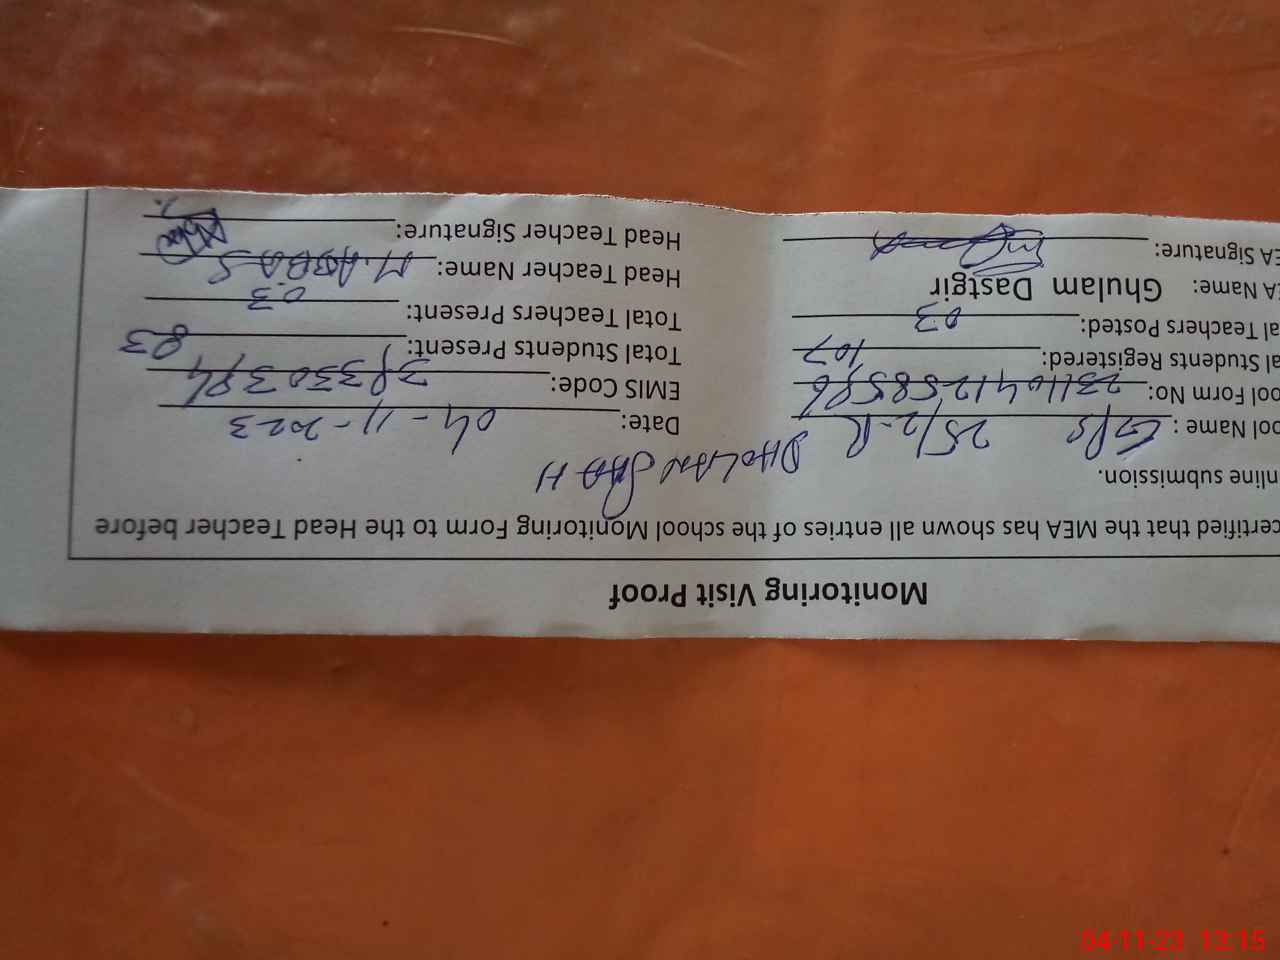 Monitoring Visit Proof
certified that the MEA has shown all entries of the school Monitoring Form to the Head Teacher before
nline submission.
ool Name : GPS 25/2-R DHOLIAN SHAH
Date: 04-11-2023
ool Form No: 23110412585596
EMIS Code:
al Students Registered: 107
Total Students Present: 83
al Teachers Posted: 03
Total Teachers Present: 03
EA Name: Ghulam Dastgir
Head Teacher Name: M. ABBAS
EA Signature:
Head Teacher Signature:
04-11-23 13:15